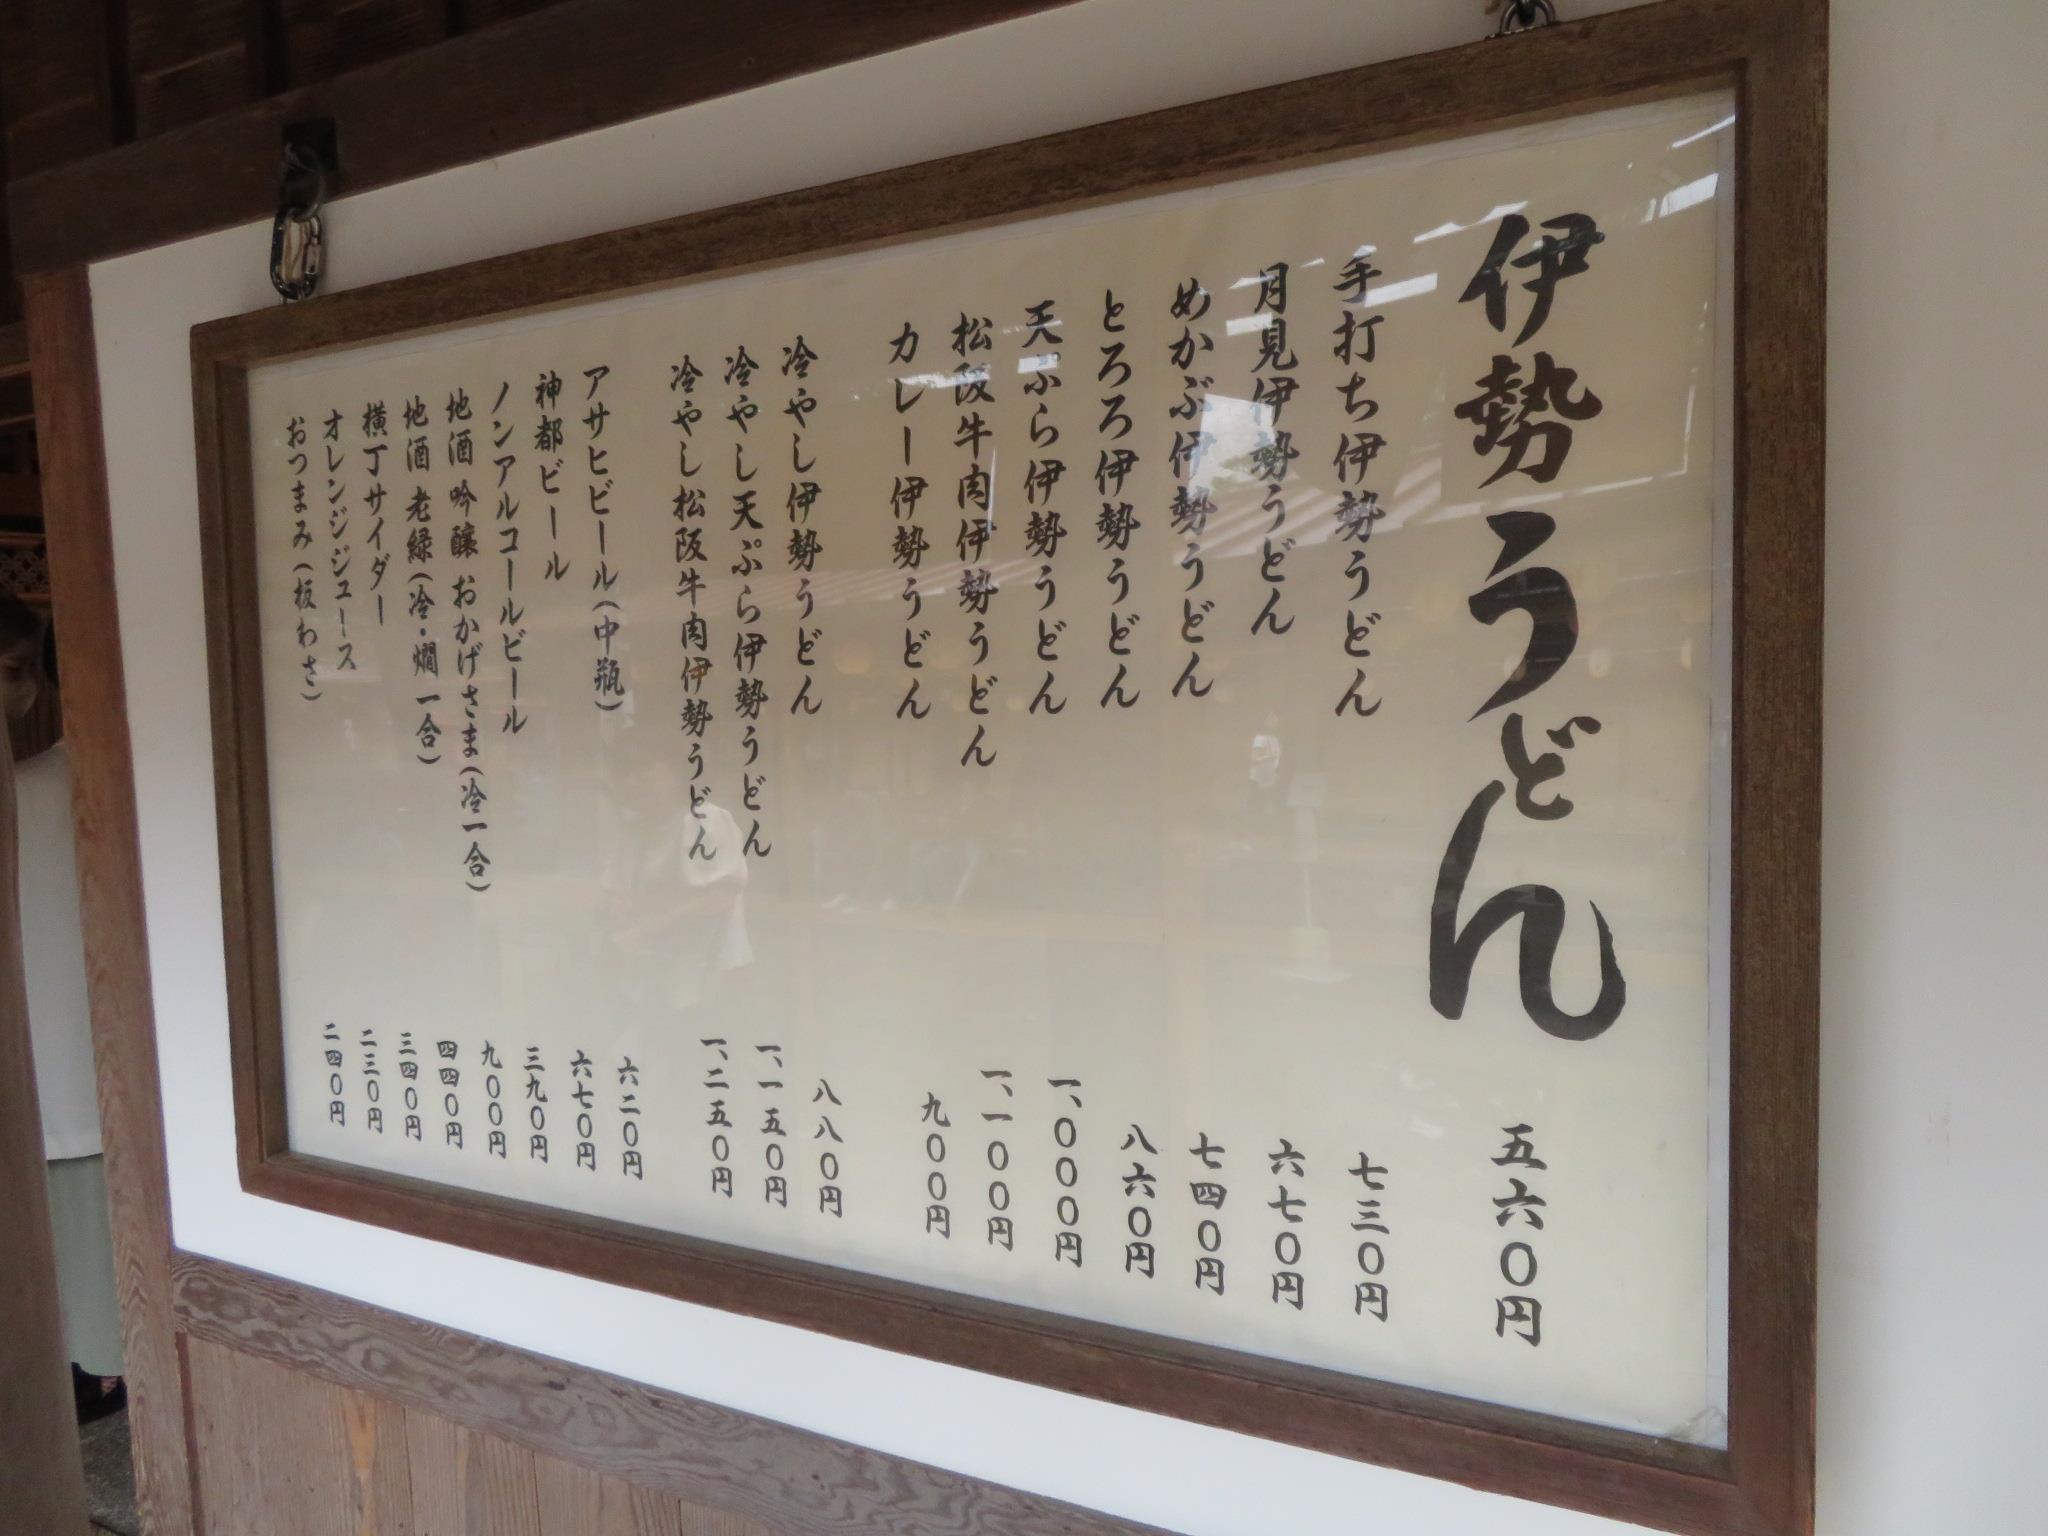 伊勢うどん 五六〇円
手打ち伊勢うどん 七三〇円
月見伊勢うどん 六七〇円
めかぶ伊勢うどん 七四〇円
とろろ伊勢うどん 八六〇円
天ぷら伊勢うどん 一、〇〇〇円
松阪牛肉伊勢うどん 一、一〇〇円
カレー伊勢うどん 九〇〇円
冷やし伊勢うどん 八八〇円
冷やし天ぷら伊勢うどん 一、一五〇円
冷やし松阪牛肉伊勢うどん 一、二五〇円
アサヒビール(中瓶) 六二〇円
神都ビール 六七〇円
ノンアルコールビール 三九〇円
地酒 吟醸 おかげさま(冷一合) 九〇〇円
地酒 老緑(冷・燗一合) 四四〇円
横丁サイダー 三四〇円
オレンジジュース 二三〇円
おつまみ(板わさ) 二四〇円